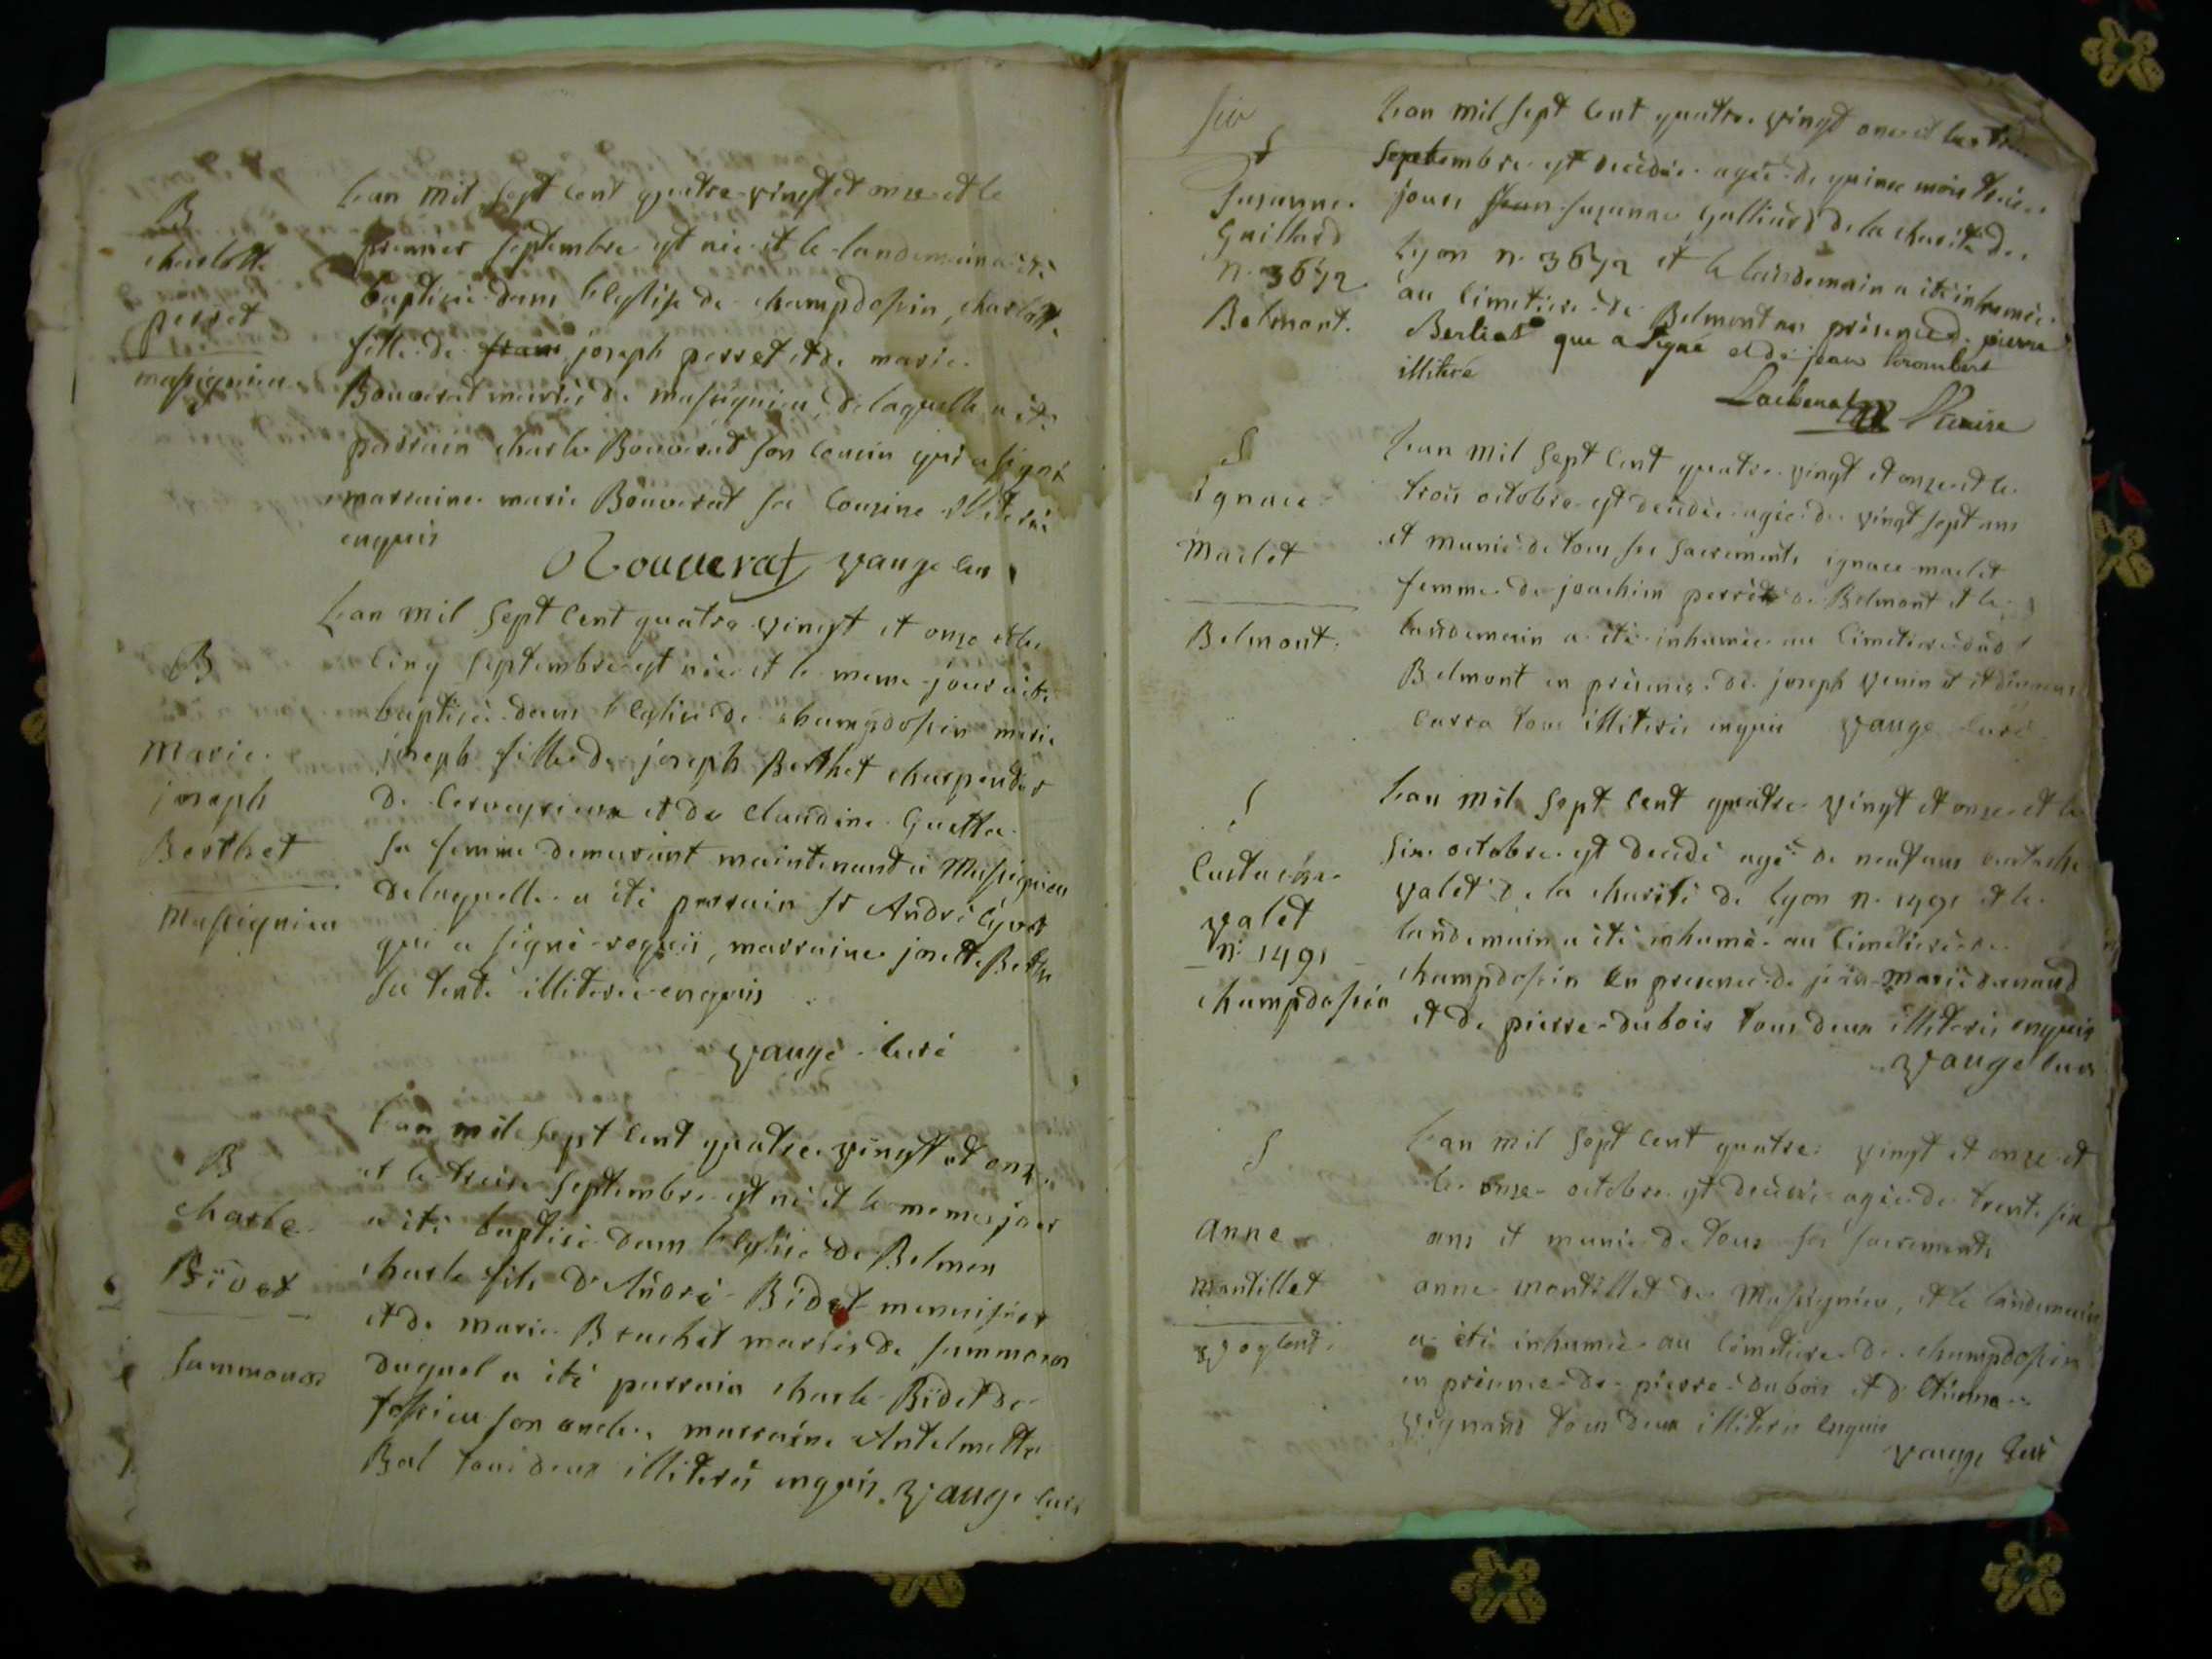 B
charlotte
perret
massignieu
Lan mil sept cent quatre vingt et onze et le
premier septembre est née et le landemain a été
baptisée dans l'eglise de champdossin, charlotte
fille de joseph perret et de marie
Bouverat mariés de massignieu, delaquelle a été
parrain charle Bouverat son cousin qui a signé
marraine marie Bouverat sa cousine illiterée
enquis
Bouuerat vauge curé
B
Marie
joseph
Berthet
Massignieu
Lan mil sept cent quatre vingt et onze et le
cinq septembre est née et le meme jour a été
baptisée dans l'eglise de champdossin marie
joseph fille de joseph Berthet charpentier
de et de Claudine Guetta
sa femme demeurant maintenant a Massignieu
delaquelle a été parrain sr André
qui a signé requis, marraine josette Berthe
sa tente illiterée enquis
vauge curé
B
charle
Bidet
sammonod
Lan mil sept cent quatre vingt et onze
et le treize septembre est né et le meme jour
a été baptisé dans l'eglise de Belmon
charle fils d'André Bidet menuisier
et de marie Brachet mariés de
duquel a été parrain charle Bidet de
son oncle, marraine Antelmette
Bal tous deux illiterés enquis. vauge curé
S
Susanne
Gaillard
n. 3672
Belmont.
Lan mil sept cent quatre vingt onze et le
septembre est décédée agée de quinze mois
jours susanne galliard de la charité de
Lyon n. 3672 et le landemain a été inhumée
au cimetiere de Belmont en présence de pierre
Berliat que a signé et de jean
illiteré
S
ignace
Marlet
Belmont.
Lan mil sept cent quatre vingt et onze et le
trois octobre est décédée agée de vingt sept ans
et munie de tous ses sacrements ignace marlet
femme de joachim perret de Belmont et le
landemain a été inhumée au cimetiere dud
Belmont en présence de joseph et
carra tous illiterés enquis vauge curé
S
Eustache
valet
n. 1491
champdossin
Lan mil sept cent quatre vingt et onze et le
six octobre est décédé agé de neuf ans eustache
valet de la charité de Lyon n. 1491 et le
landemain a été inhumé au cimetiere de
champdossin en presence de marie
et de pierre dubois tous deux illiterés enquis
vauge curé
S
anne
montillet
Lan mil sept cent quatre vingt et onze et
le onze octobre est décédée agée de trente six
ans et munie de tous ses sacrements
anne montillet de Massignieu, et le landemain
a été inhumée au cimetiere de champdossin
en présence de pierre dubois et d'etienne
vignand tous deux illiterés enquis
vauge curé